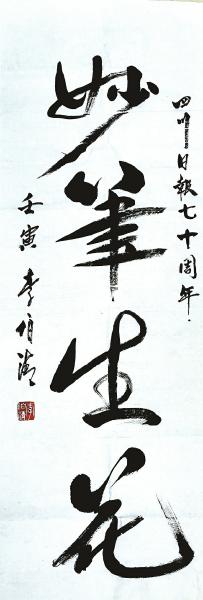 四川日報七十周年
妙筆生花
壬寅 李伯清